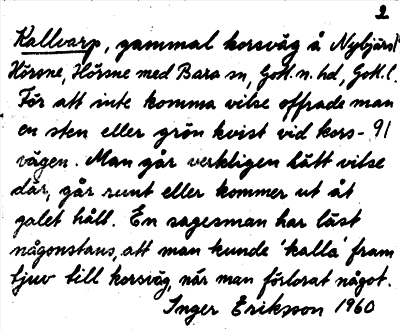 2
Kallvarp, gammal korsväg å Nybjärs!
Hörsne, Hörsne med Bara sn, Gotl. n. hd, Gotl. l.
För att inte komma vilse offrade man
en sten eller grön kvist vid kors- 91
vägen. Man går verkligen lätt vilse
där, går runt eller kommer ut åt
galet håll. En sagesman har läst
någonstans, att man kunde 'kalla' fram
tjuv till korsväg, när man förlorat något.
Inger Eriksson 1960